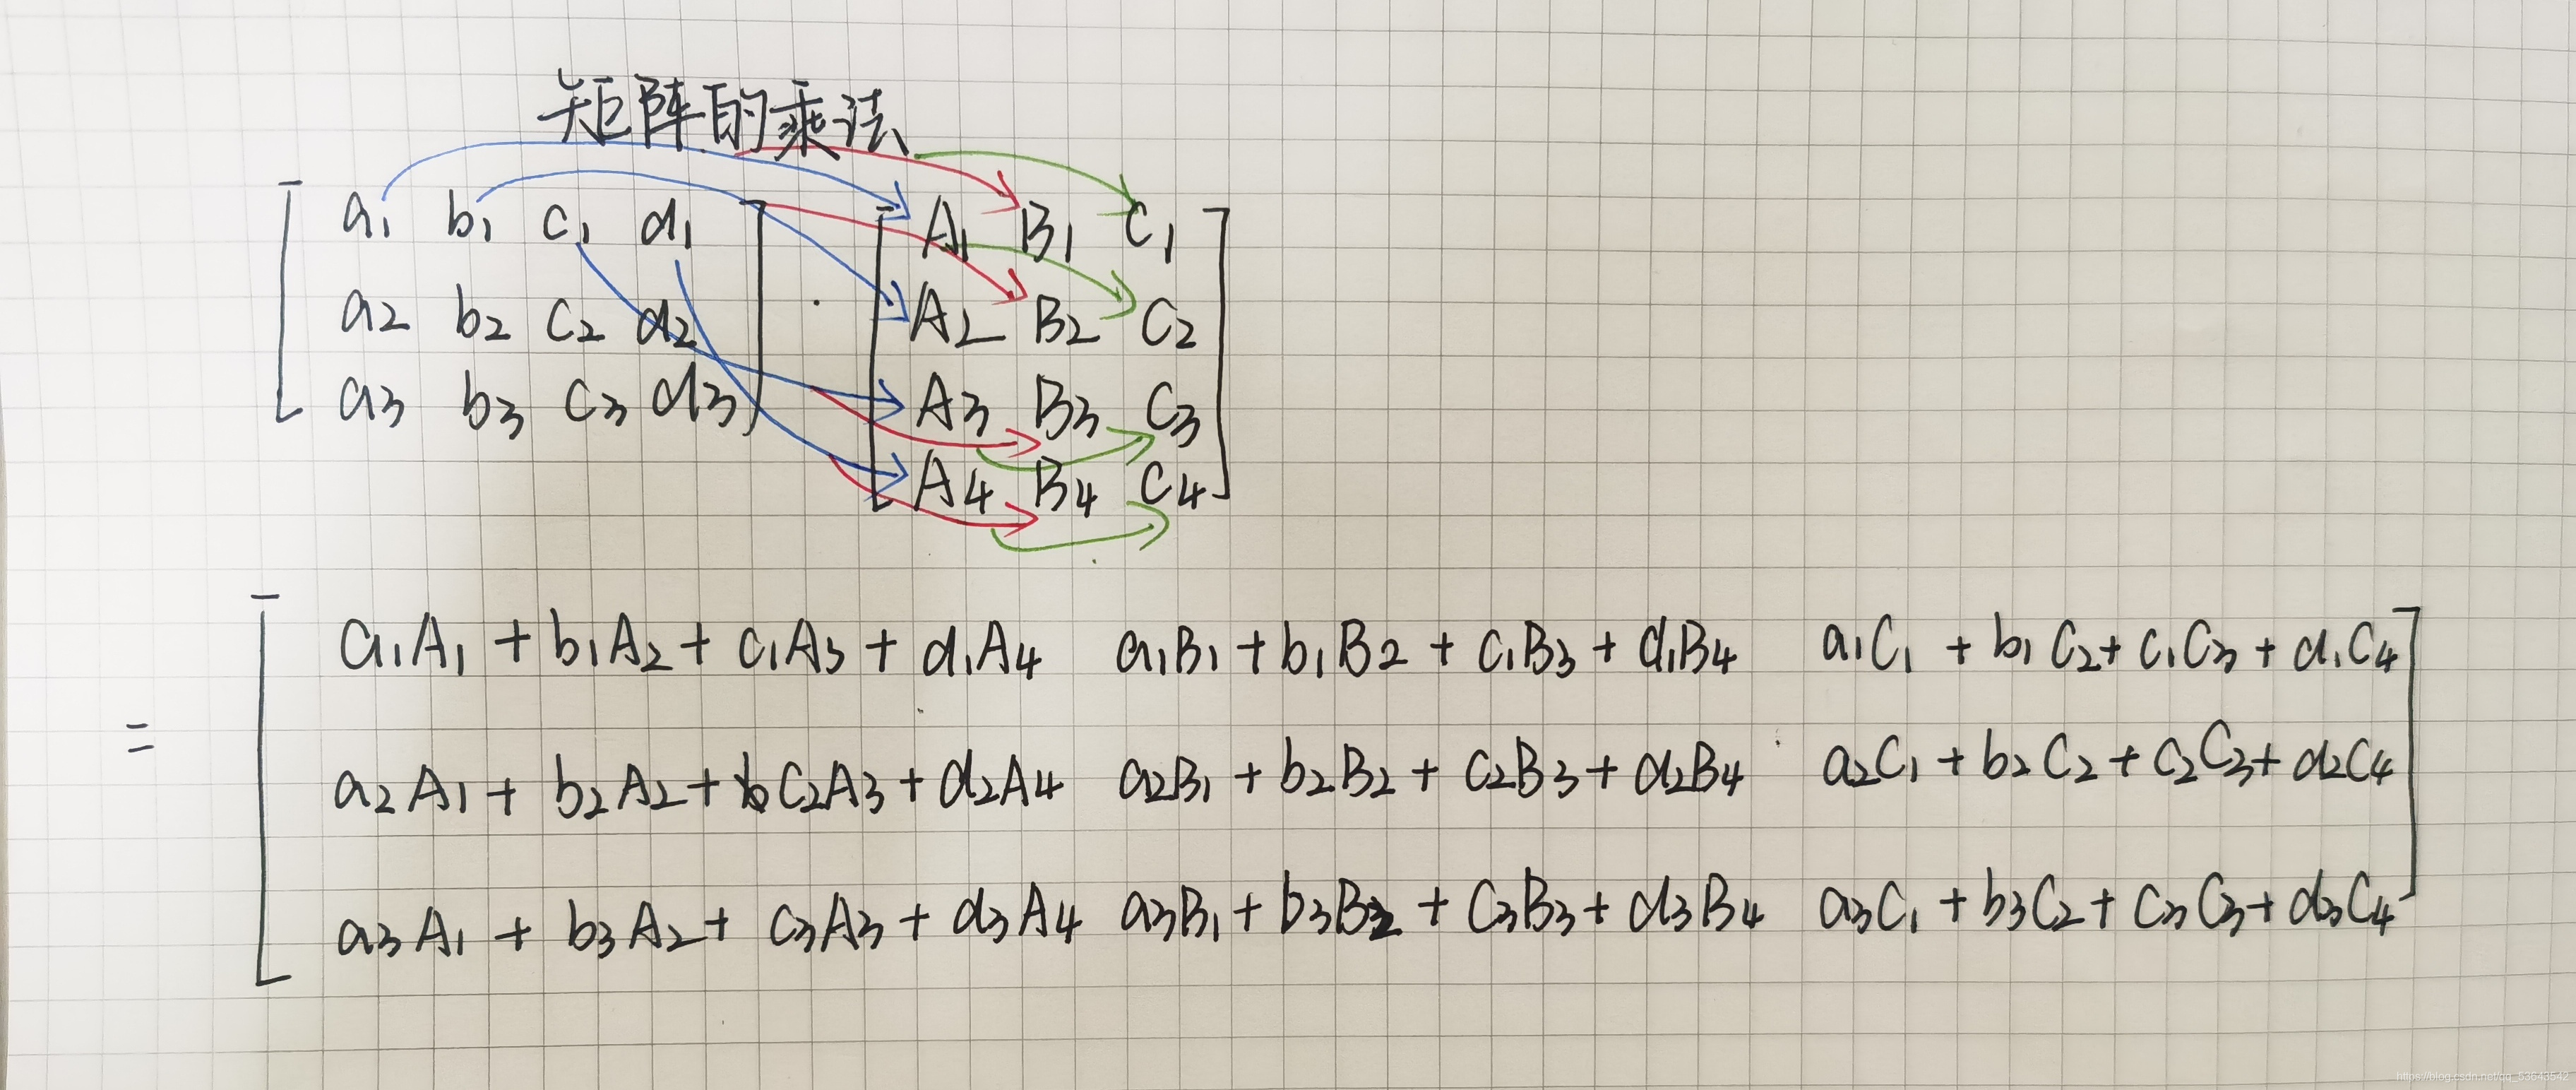 矩阵的乘法
a1 b1 c1 d1 A1 B1 C1
a2 b2 c2 d2 · A2 B2 C2
a3 b3 c3 d3 A3 B3 C3
A4 B4 C4
a1A1 + b1A2 + c1A3 + d1A4 a1B1 + b1B2 + c1B3 + d1B4 a1C1 + b1C2 + c1C3 + d1C4
= a2A1 + b2A2 + c2A3 + d2A4 a2B1 + b2B2 + c2B3 + d2B4 a2C1 + b2C2 + c2C3 + d2C4
a3A1 + b3A2 + c3A3 + d3A4 a3B1 + b3B2 + c3B3 + d3B4 a3C1 + b3C2 + c3C3 + d3C4
https://blog.csdn.net/qq_53643542